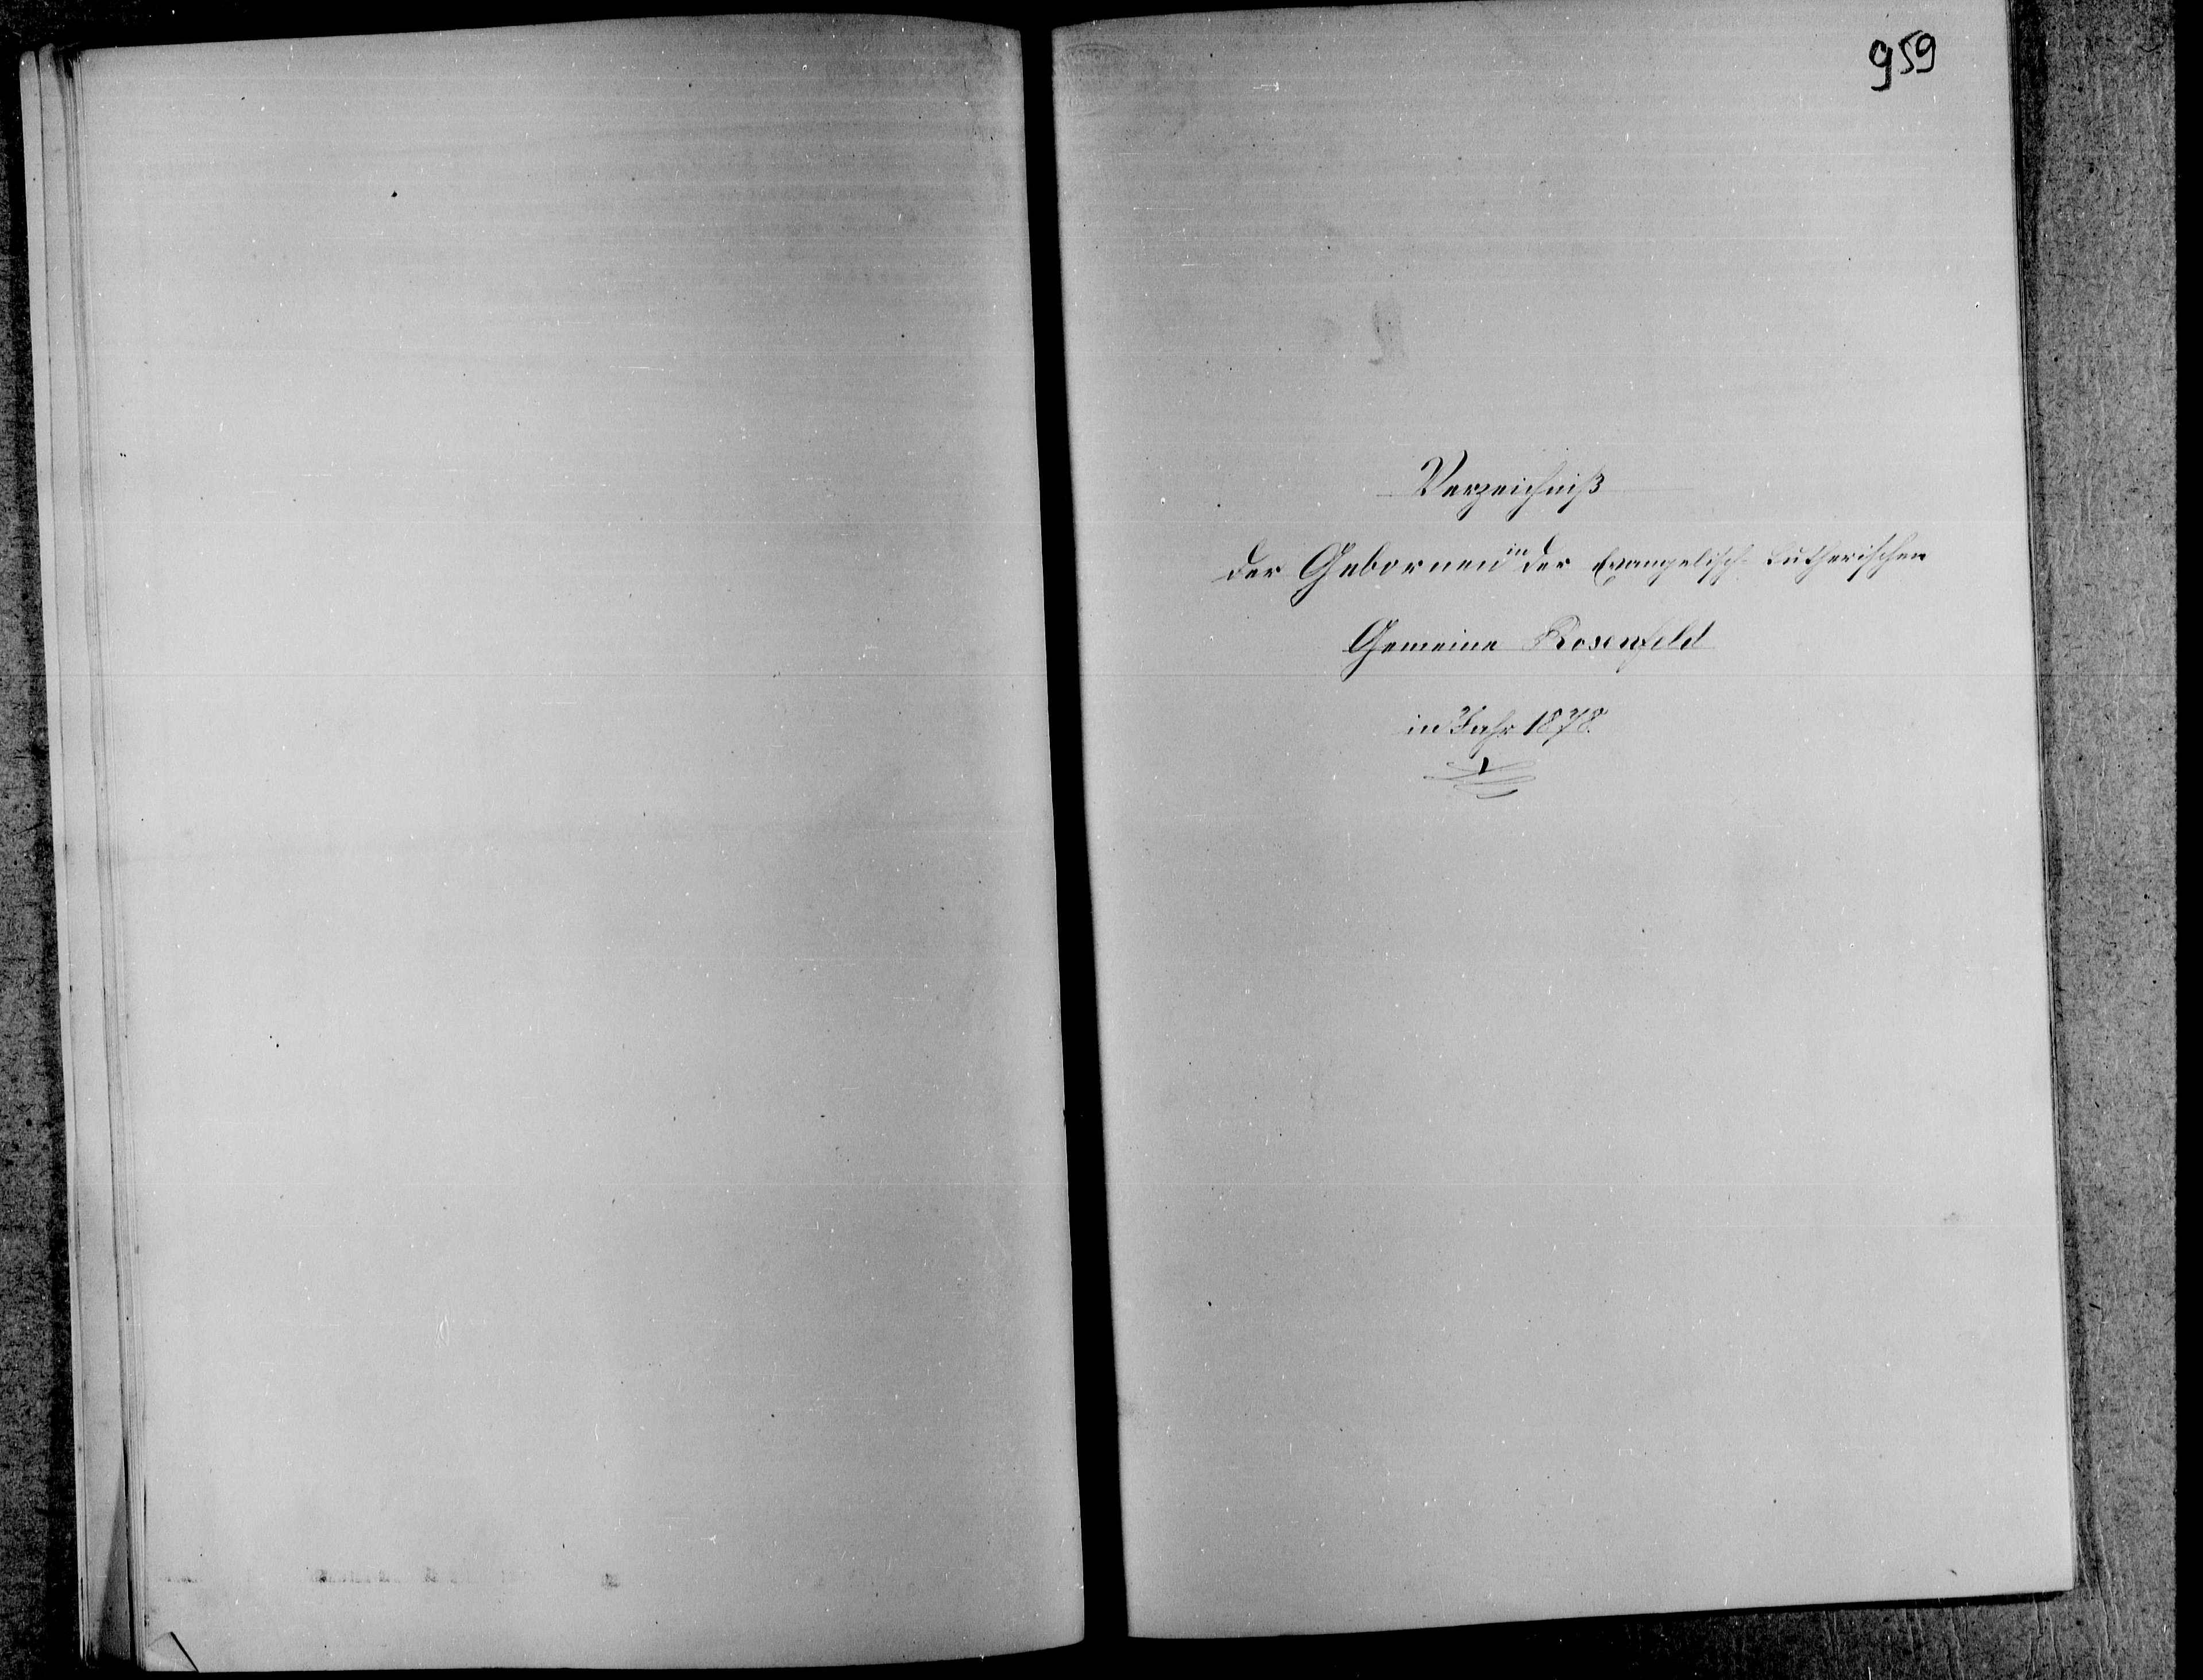 959
Verzeichniß
der Gebornen in der Evangelisch-Lutherischen
Gemeine Rosenfeld
in Jahr 1878.